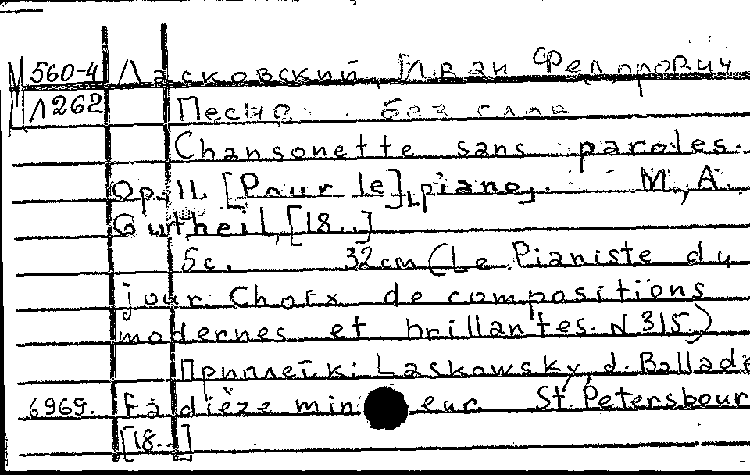 М 560-4 Ласковский, Иван Федорович
Л262 Песня без слов
Chansonette sans paroles.
Op. 11. [Pour le] piano. M., A.
Gutheil, [18..]
5с. 32см (Le Pianiste du
jour. Choix de compositions
modernes et brillantes. N 315)
Приплетки: Laskowsky, J. Ballade
6969. Fa dièze mineur. St. Petersbour
[18..]